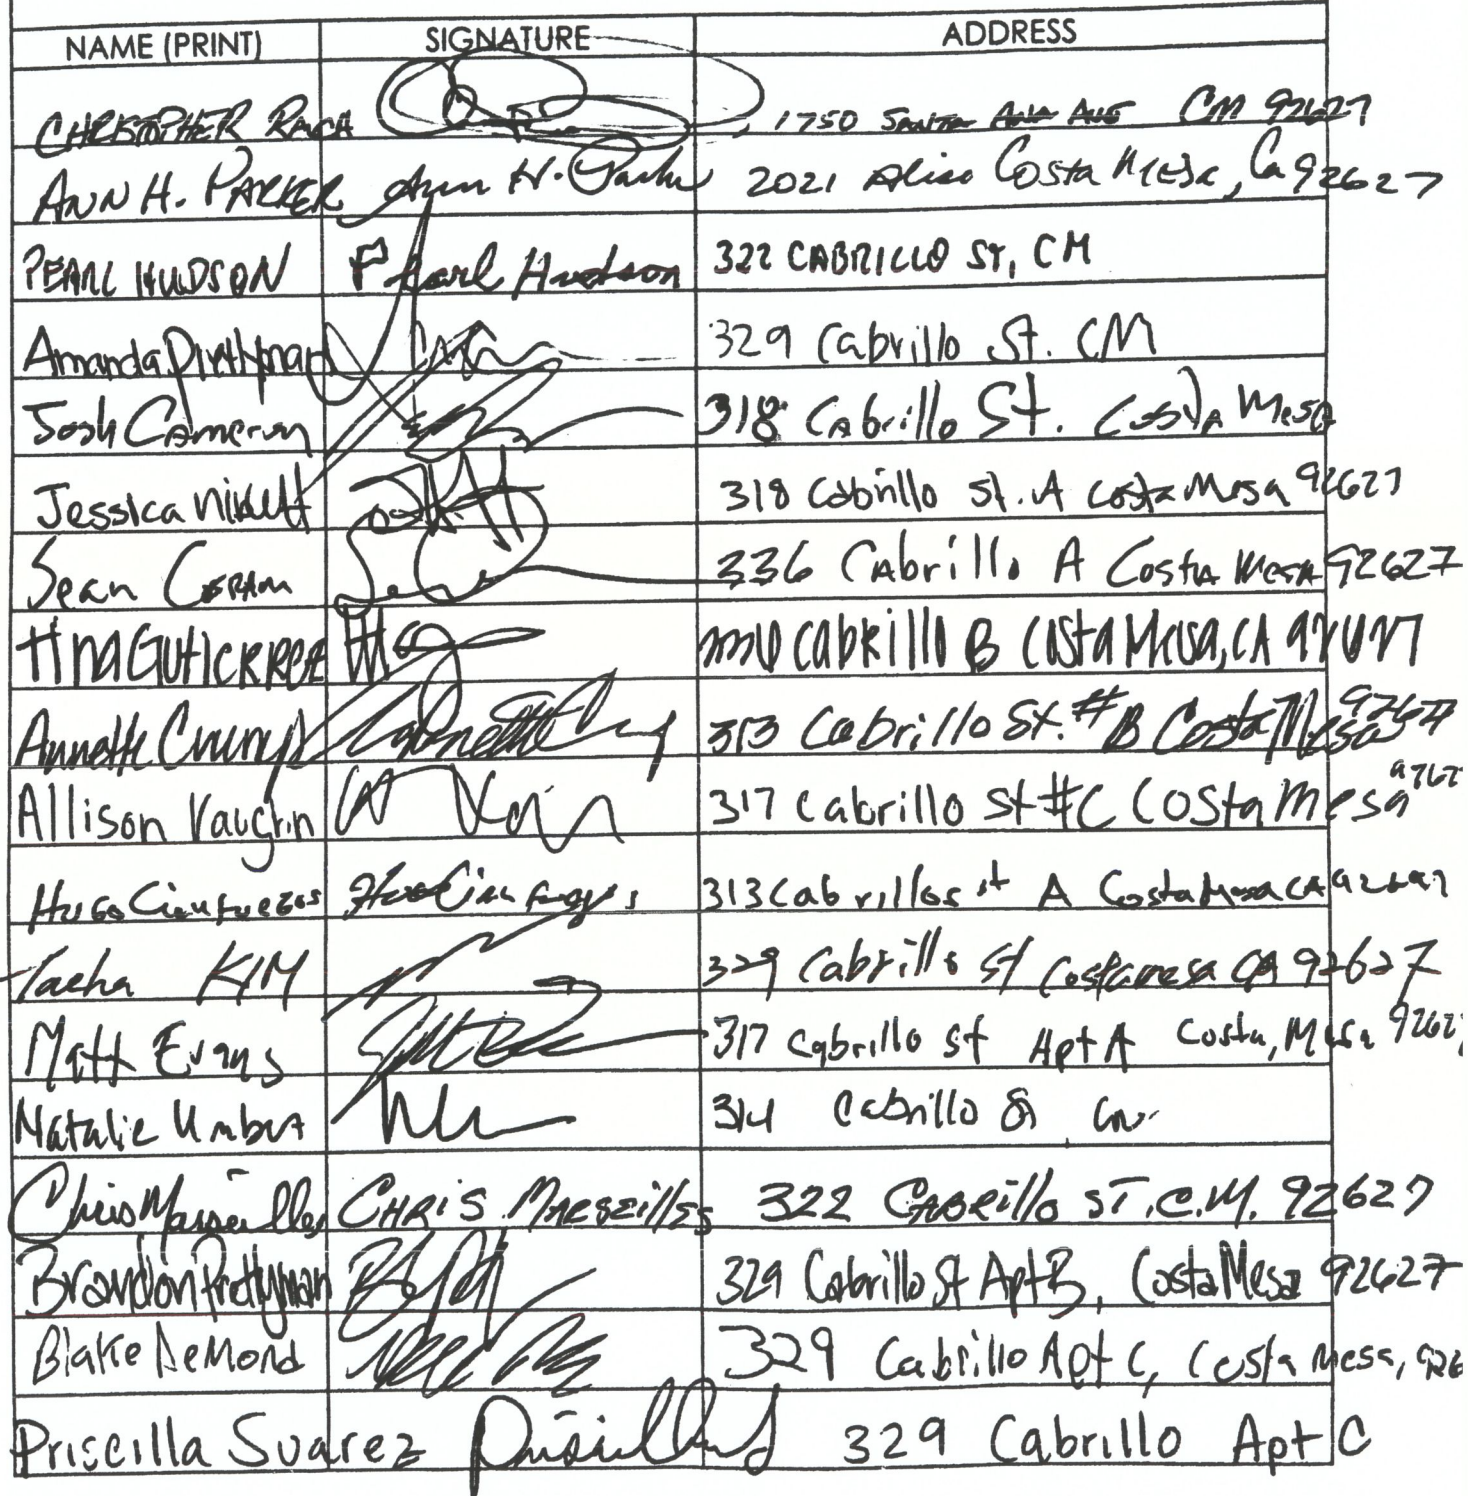 NAME (PRINT) SIGNATURE ADDRESS
CHRISTOPHER 1750 SANTA ANA AVE CM 92627
ANN H. PARKER Ann H. Parker 2021 Aliso Costa Mesa, Ca 92627
PEARL HUDSON Pearl Hudson 322 CABRILLO ST, CM
Amanda Prettyman 329 Cabrillo St. CM
Josh Cameron 318 Cabrillo St. Costa Mesa
Jessica 318 Cabrillo St. A Costa Mesa 92627
Sean 336 Cabrillo A Costa Mesa 92627
Tina Cabrillo B Costa Mesa, CA
Annette 313 Cabrillo St. #B Costa Mesa
Allison Vaughn 317 Cabrillo St #C Costa Mesa
Hugo Cienfuegos Hugo Cienfuegos 313 Cabrillo st A Costa Mesa CA
KIM 329 Cabrillo St Costa mesa CA 92627
Matt Evans 317 Cabrillo St Apt A Costa, Mesa 9262
Natalie 314 Cabrillo
Chris Marseilles CHRIS Marseilles 322 Cabrillo ST. C.M. 92627
Brandon Prettyman 329 Cabrillo St Apt B, Costa Mesa 92627
Blake DeMond 329 Cabrillo Apt C, Costa Mesa, 926
Priscilla Suarez 329 Cabrillo Apt C